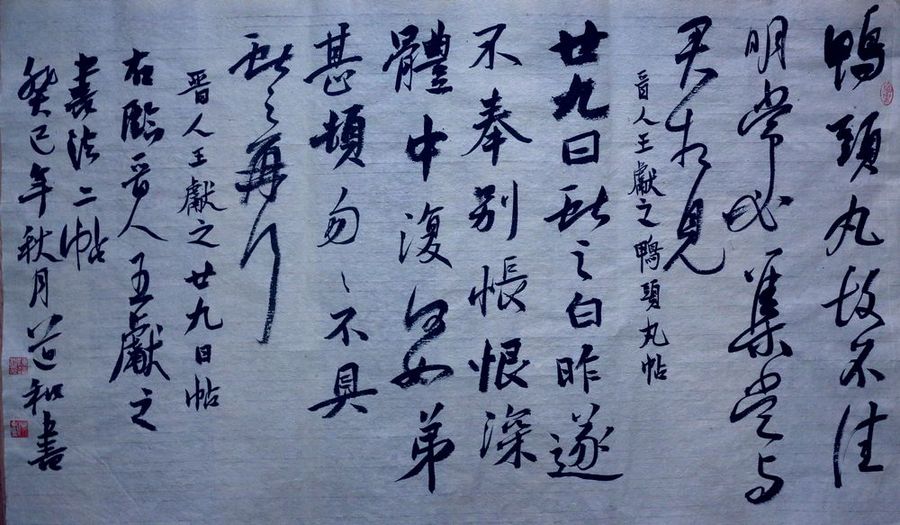 鴨頭丸故不佳
明當必集當与
君相見
晉人王獻之鴨頭丸帖
廿九日獻之白昨遂
不奉别悵恨深
體中復何如弟
甚頓勿〻不具
獻之再行
晉人王獻之廿九日帖
右臨晉人王獻之
書法二帖
癸巳年秋月道和書